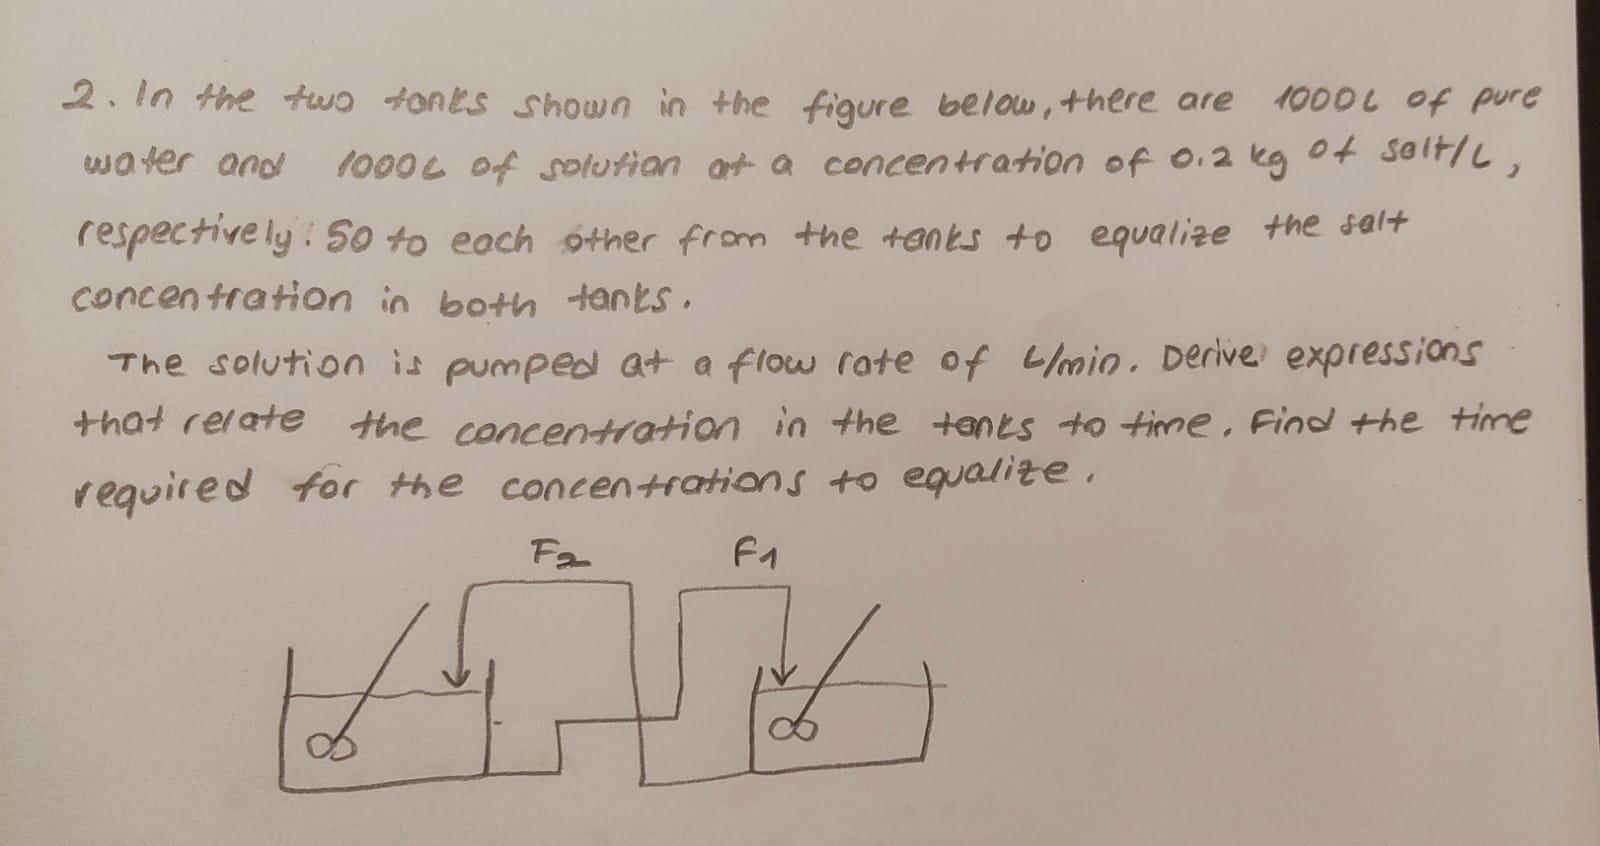 2. In the two tanks shown in the figure below, there are 1000L of pure
water and 1000L of solution at a concentration of 0.2 kg of salt/L,
respectively. 50 to each other from the tanks to equalize the salt
concentration in both tanks.
The solution is pumped at a flow rate of L/min. Derive expressions
that relate the concentration in the tanks to time. Find the time
required for the concentrations to equalize.
F2 F1